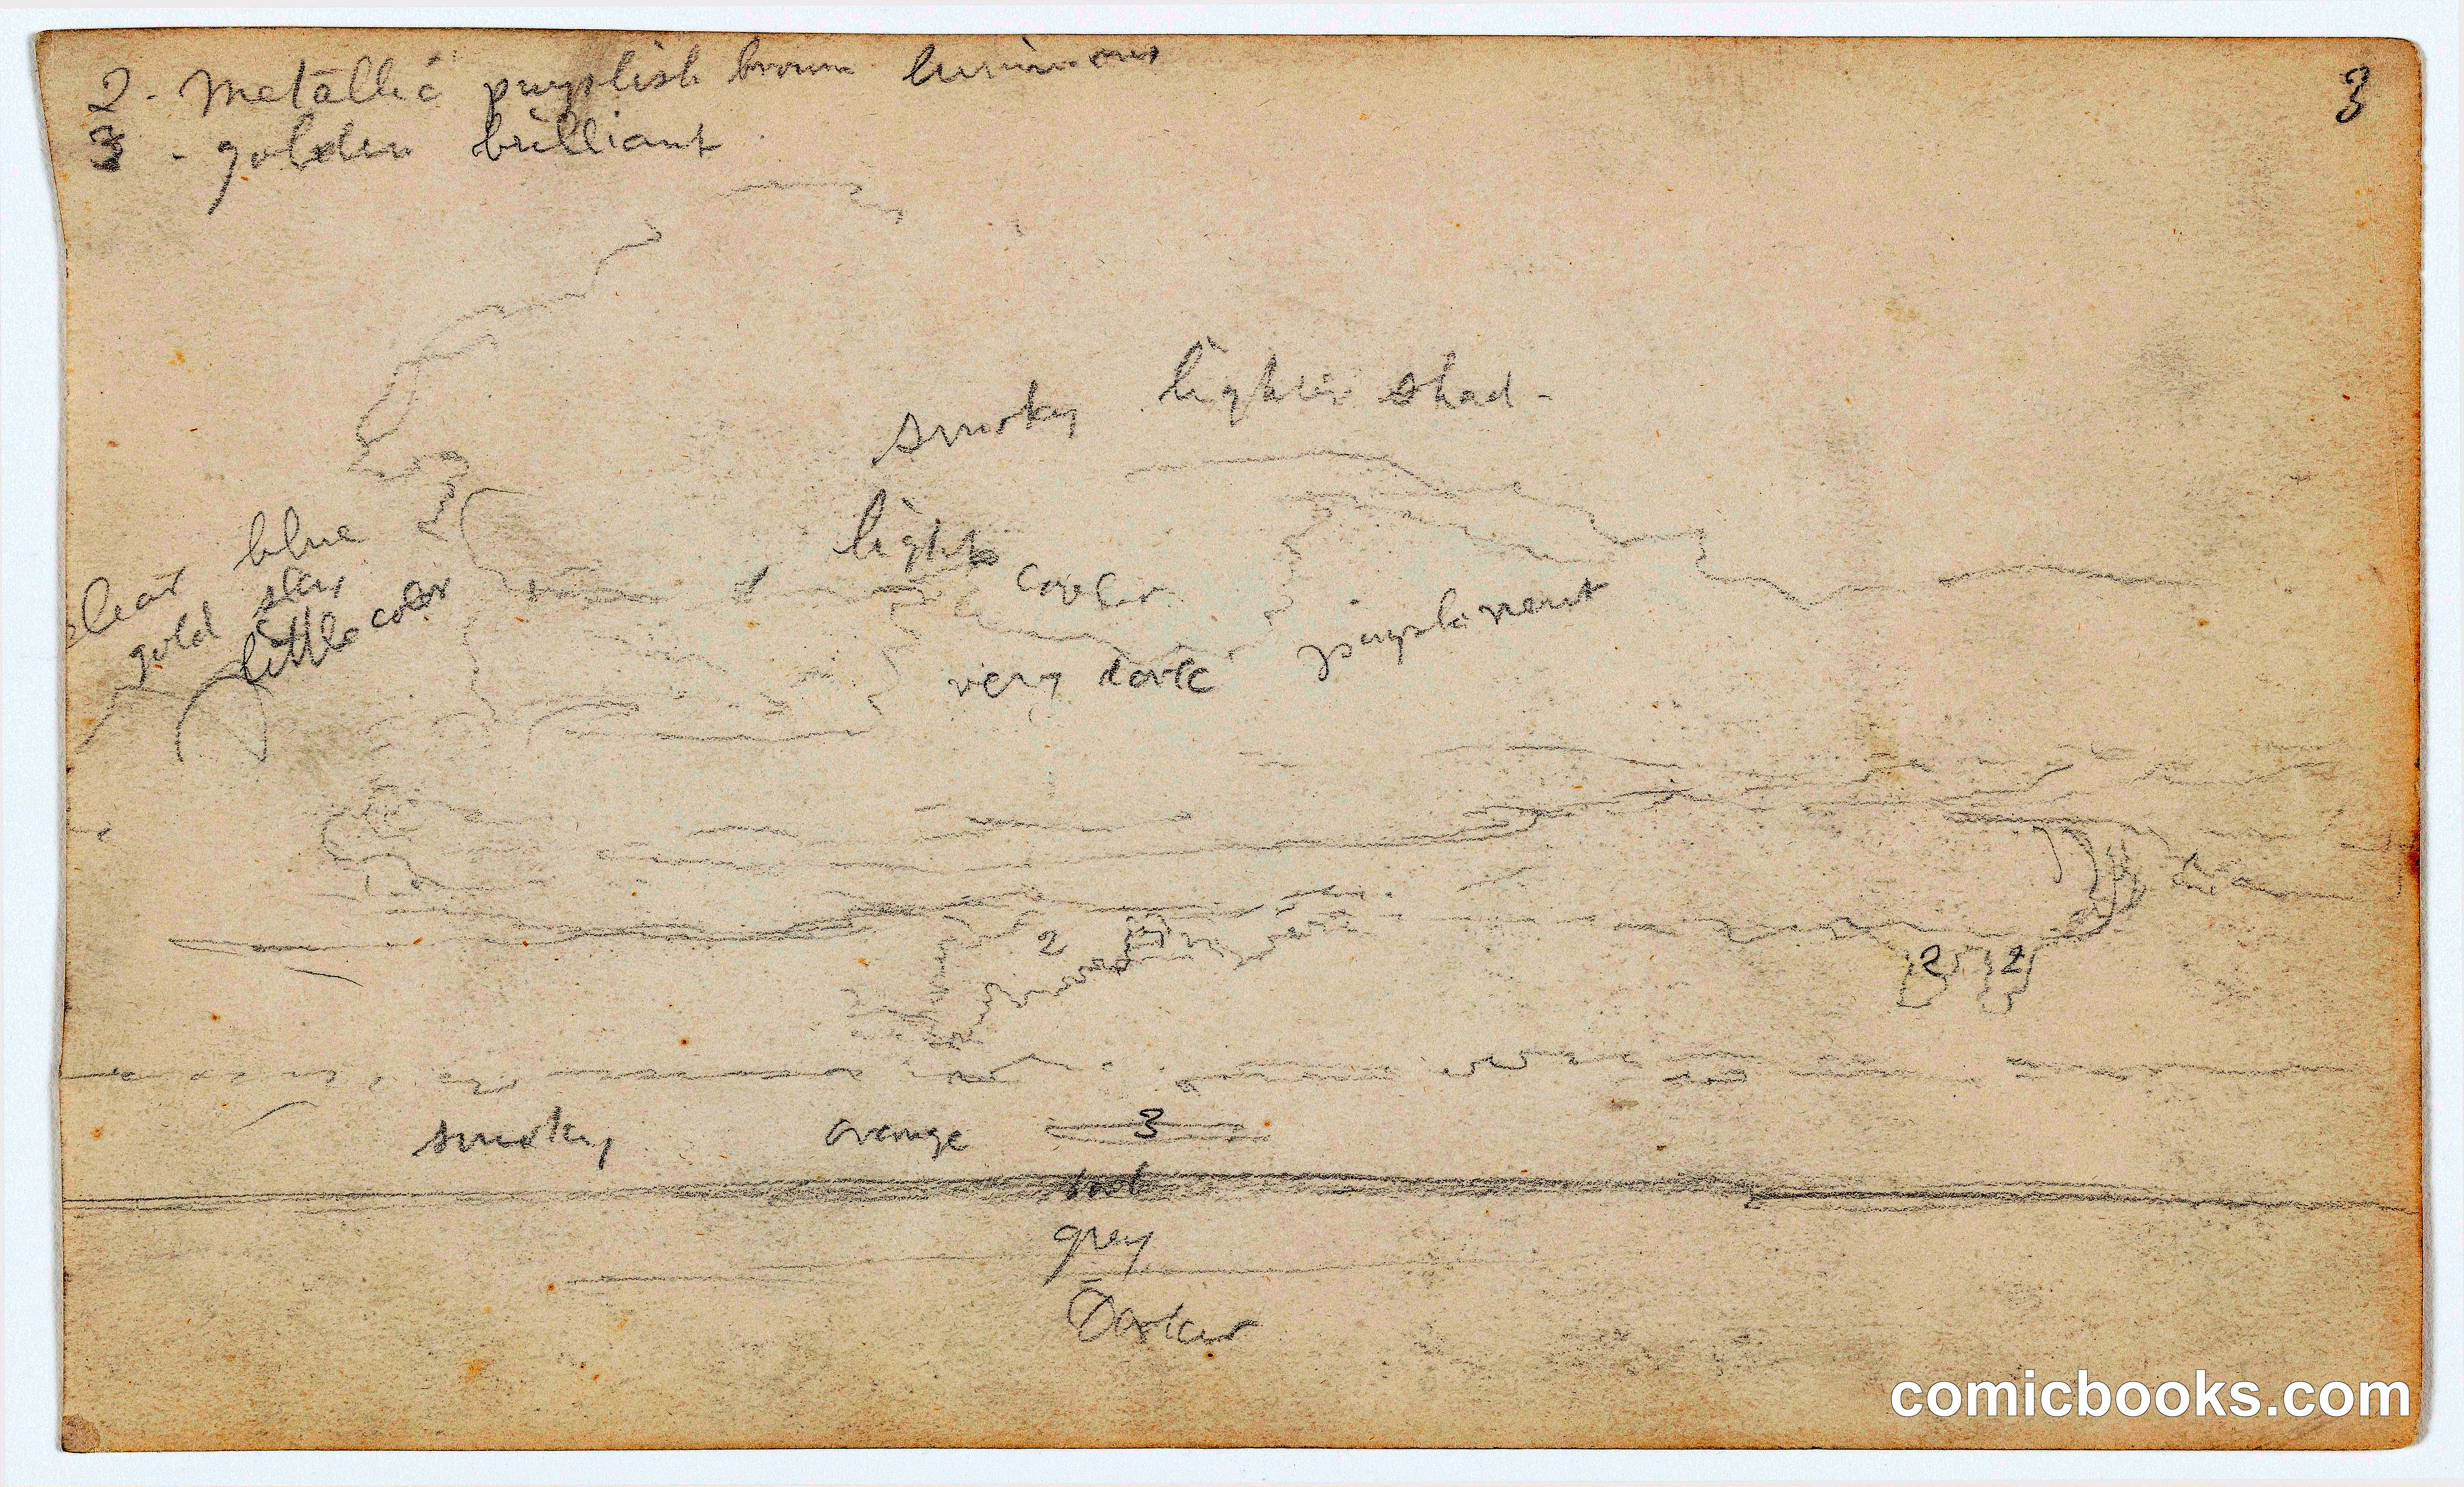 2 - Metallic purplish brown luminous
3
3 - golden brilliant
smoky lighter shad -
light
clear blue
gold sky
little color
very dark
2
2 2
smoky orange 3
dark
grey
Darker
comicbooks.com